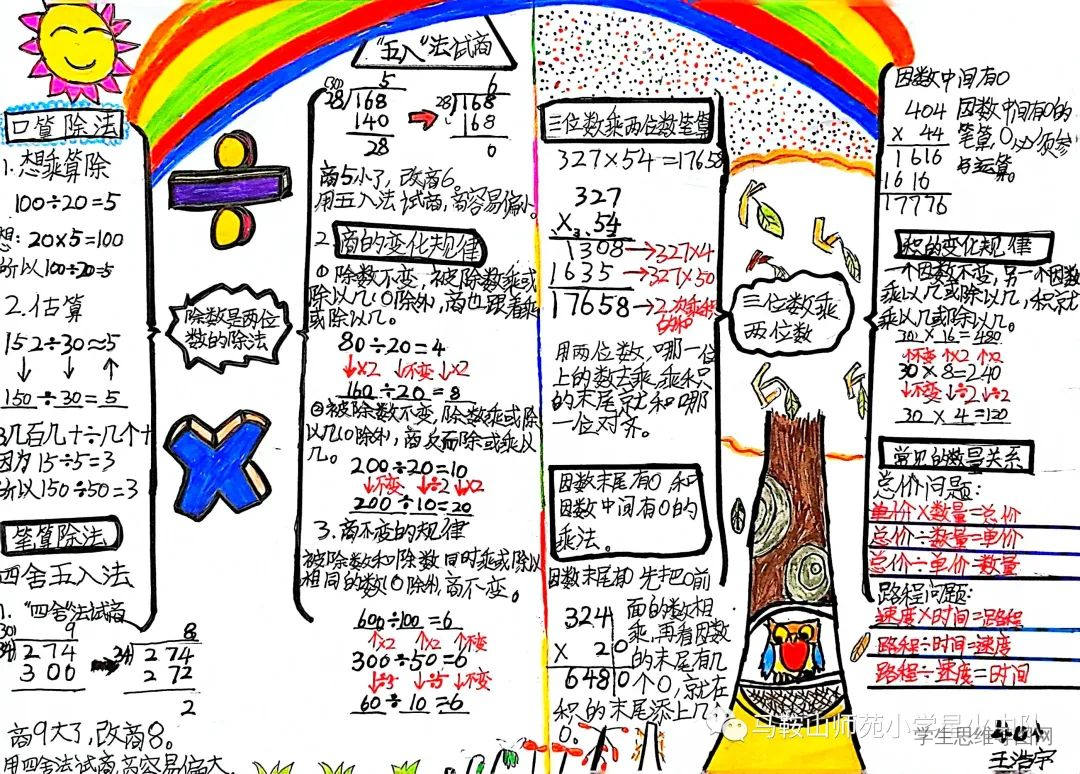 口算除法
1.想乘算除
100÷20=5
想:20×5=100
所以100÷20=5
2.估算
152÷30≈5
150÷30=5
3几百几十÷几个十
因为15÷5=3
所以150÷50=3
笔算除法
四舍五入法
1."四舍"法试商
(30)
9
34 274
300
8
34 274
272
2
商9大了,改商8。
用四舍法试商,商容易偏大。
除数是两位
数的除法
"五入"法试商
(30)
5
28 168
140
28
6
28 168
168
0
商5小了,改商6。
用五入法试商,商容易偏小。
2.商的变化规律
①除数不变,被除数乘或
除以几(0除外,商也跟着乘
或除以几。
80÷20=4
↓×2 ↓不变 ↓×2
160÷20=8
②被除数不变,除数乘或除
以几(0除外,商反而除或乘以
几。
200÷20=10
↓不变 ↓÷2 ↓×2
200÷10=20
3.商不变的规律
被除数和除数同时乘或除以
相同的数(0除外,商不变。
600÷100=6
↑×2 ↑×2 ↑不变
300÷50=6
↓÷5 ↓÷5 ↓不变
60÷10=6
三位数乘两位数笔算
327×54=17658
327
× 54
1308→327×4
1635→327×50
17658→2次乘积
的和
用两位数,哪一位
上的数去乘,乘积
的末尾就和哪
一位对齐。
因数末尾有0和
因数中间有0的
乘法。
因数末尾有0 先把0前
面的数相
乘,再看因数
的末尾有几
个0,就在
积的末尾添上几个
0。
324
× 20
6480
三位数乘
两位数
因数中间有0
404
× 44
1616
1616
17776
因数中间有0的
笔算,0必须参
与运算。
积的变化规律
一个因数不变,另一个因数
乘以几或除以几,积就
乘以几或除以几。
30×16=480
↑不变 ↑×2 ↑×2
30×8=240
↓不变 ↓÷2 ↓÷2
30×4=120
常见的数量关系
总价问题:
单价×数量=总价
总价÷数量=单价
总价÷单价=数量
路程问题:
速度×时间=路程
路程÷时间=速度
路程÷速度=时间
马鞍山师苑小学星火中队
学生思维导图网
王浩宇